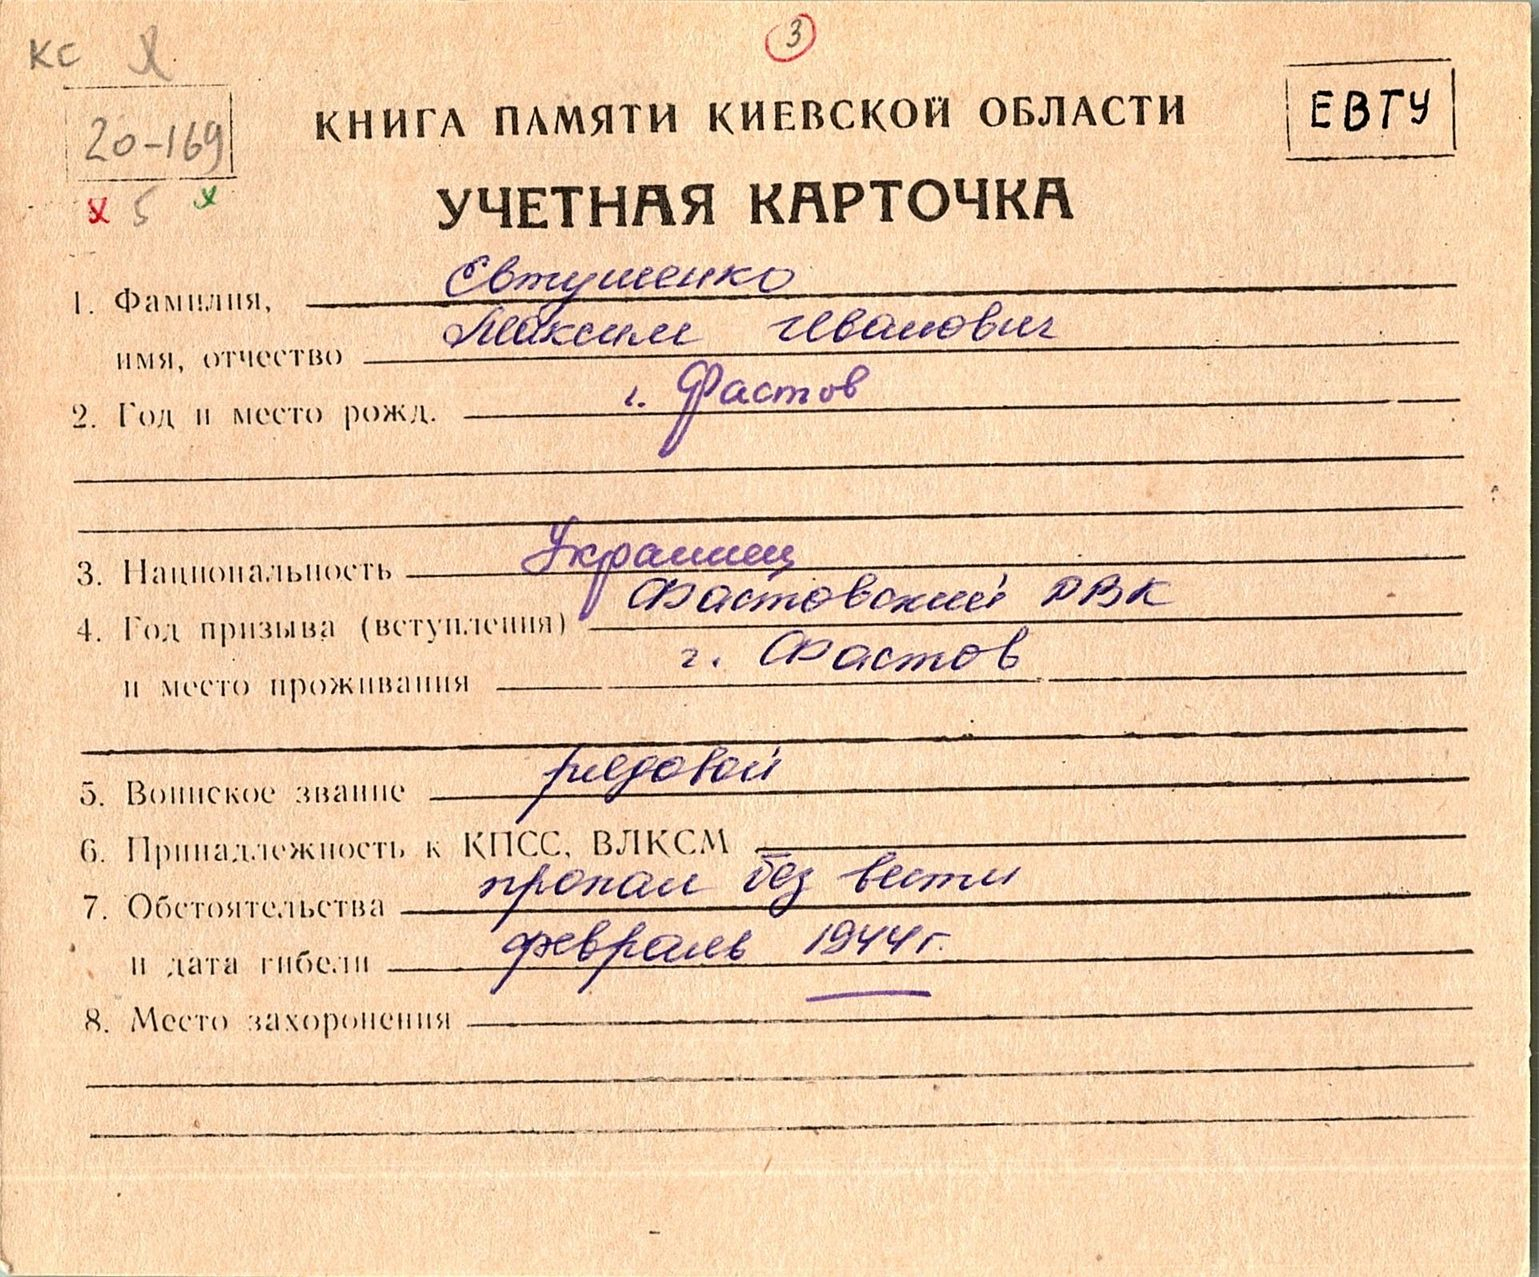 КС
3
20-169
ЕВТУ
КНИГА ПАМЯТИ КИЕВСКОЙ ОБЛАСТИ
5
УЧЕТНАЯ КАРТОЧКА
1. Фамилия, Евтушенко
имя, отчество Максим Иванович
2. Год и место рожд. г. Фастов
3. Национальность Украинец
4. Год призыва (вступления) Фастовский РВК
и место проживания г. Фастов
5. Воинское звание рядовой
6. Принадлежность к КПСС, ВЛКСМ
7. Обстоятельства пропал без вести
и дата гибели февраль 1944г.
8. Место захоронения